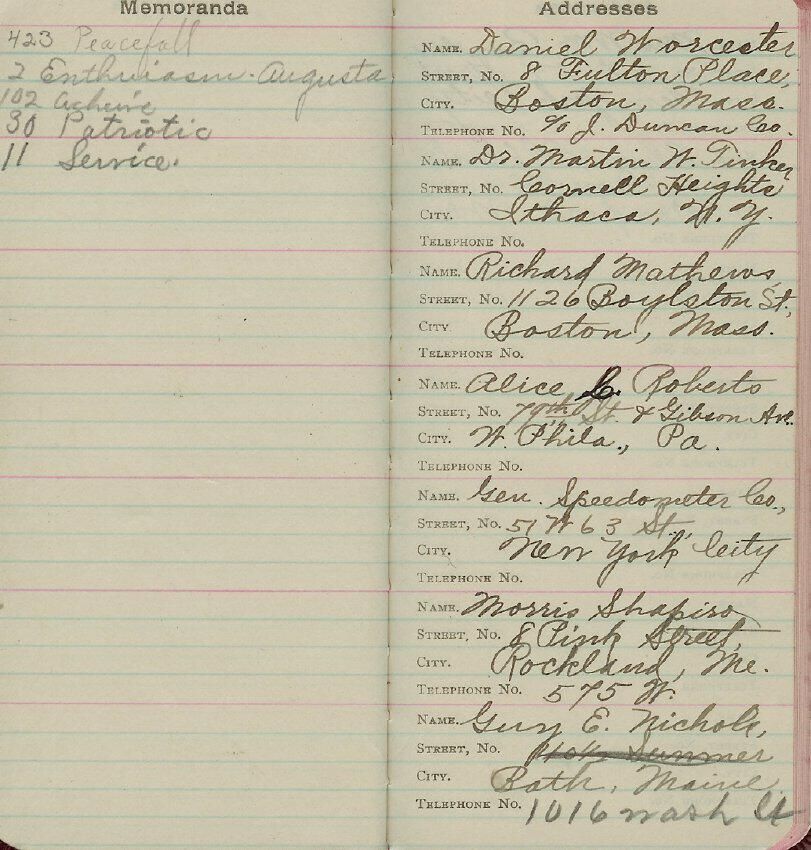 Memoranda
423 Peacefull
2 Enthuiasm. Augusta
102 Acheive
30 Patriotic
11 Service.
Addresses
NAME. Daniel Worcester
STREET, NO. 8 Fulton Place,
CITY. Boston, Mass.
TELEPHONE NO. c/o J. Duncan Co.
NAME. Dr. Martin W. Tinker
STREET, NO. Cornell Heights
CITY. Ithaca, N.Y.
TELEPHONE NO.
NAME. Richard Mathews,
STREET, NO. 1126 Boylston St.,
CITY Boston, Mass.
TELEPHONE NO.
NAME. Alice C. Roberts
STREET, NO. 79th St. & Gibson Ave.
CITY. W. Phila., Pa.
TELEPHONE NO.
NAME. Gen. Speedometer Co.,
STREET, NO. 51 W 63 St.,
CITY. New York City
TELEPHONE NO.
NAME. Morris Shapiro
STREET, NO. 8 Pink Street,
CITY. Rockland, Me.
TELEPHONE NO. 575 W.
NAME. Guy E. Nichols,
STREET, NO. Summer
CITY. Bath, Maine
TELEPHONE NO. 1016 Wash St